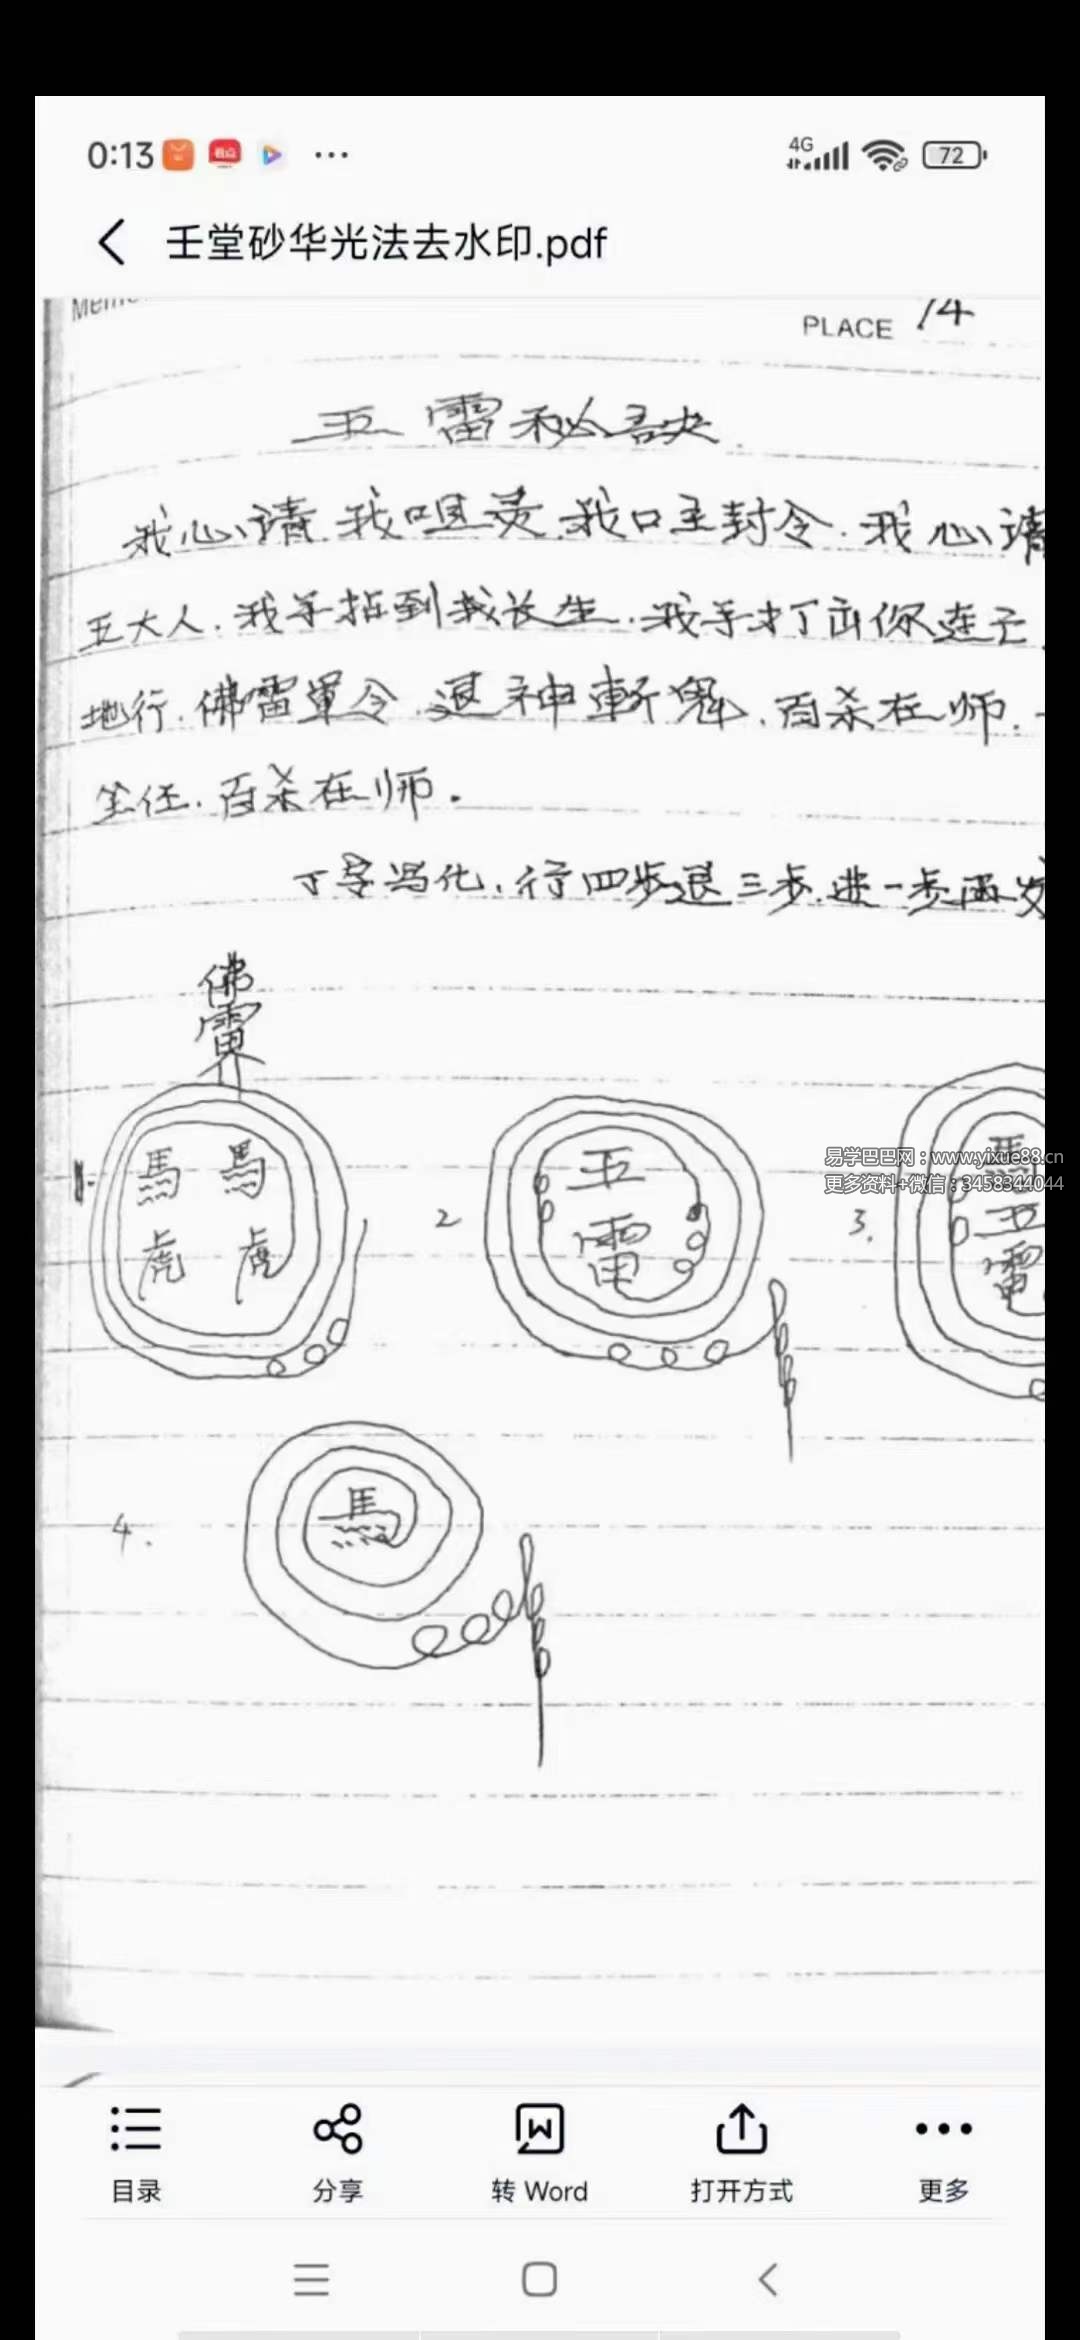 0:13
4G
72
壬堂砂华光法去水印.pdf
PLACE 14
五雷秘訣
我心请.我咀灵.我口主封令.我心请
五大人.我手拈到我长生.我手打出你连亡
地行.佛雷軍令.退神斬鬼.百杀在师.
坐任.百杀在师.
丁字冯化,行四步退三步.进一步再发
佛
雷
1.
馬 馬
虎 虎
2
五
雷
3.
馬
五
雷
易学巴巴网：www.yixue88.cn
更多资料+微信：3458344044
4.
馬
目录
分享
转 Word
打开方式
更多